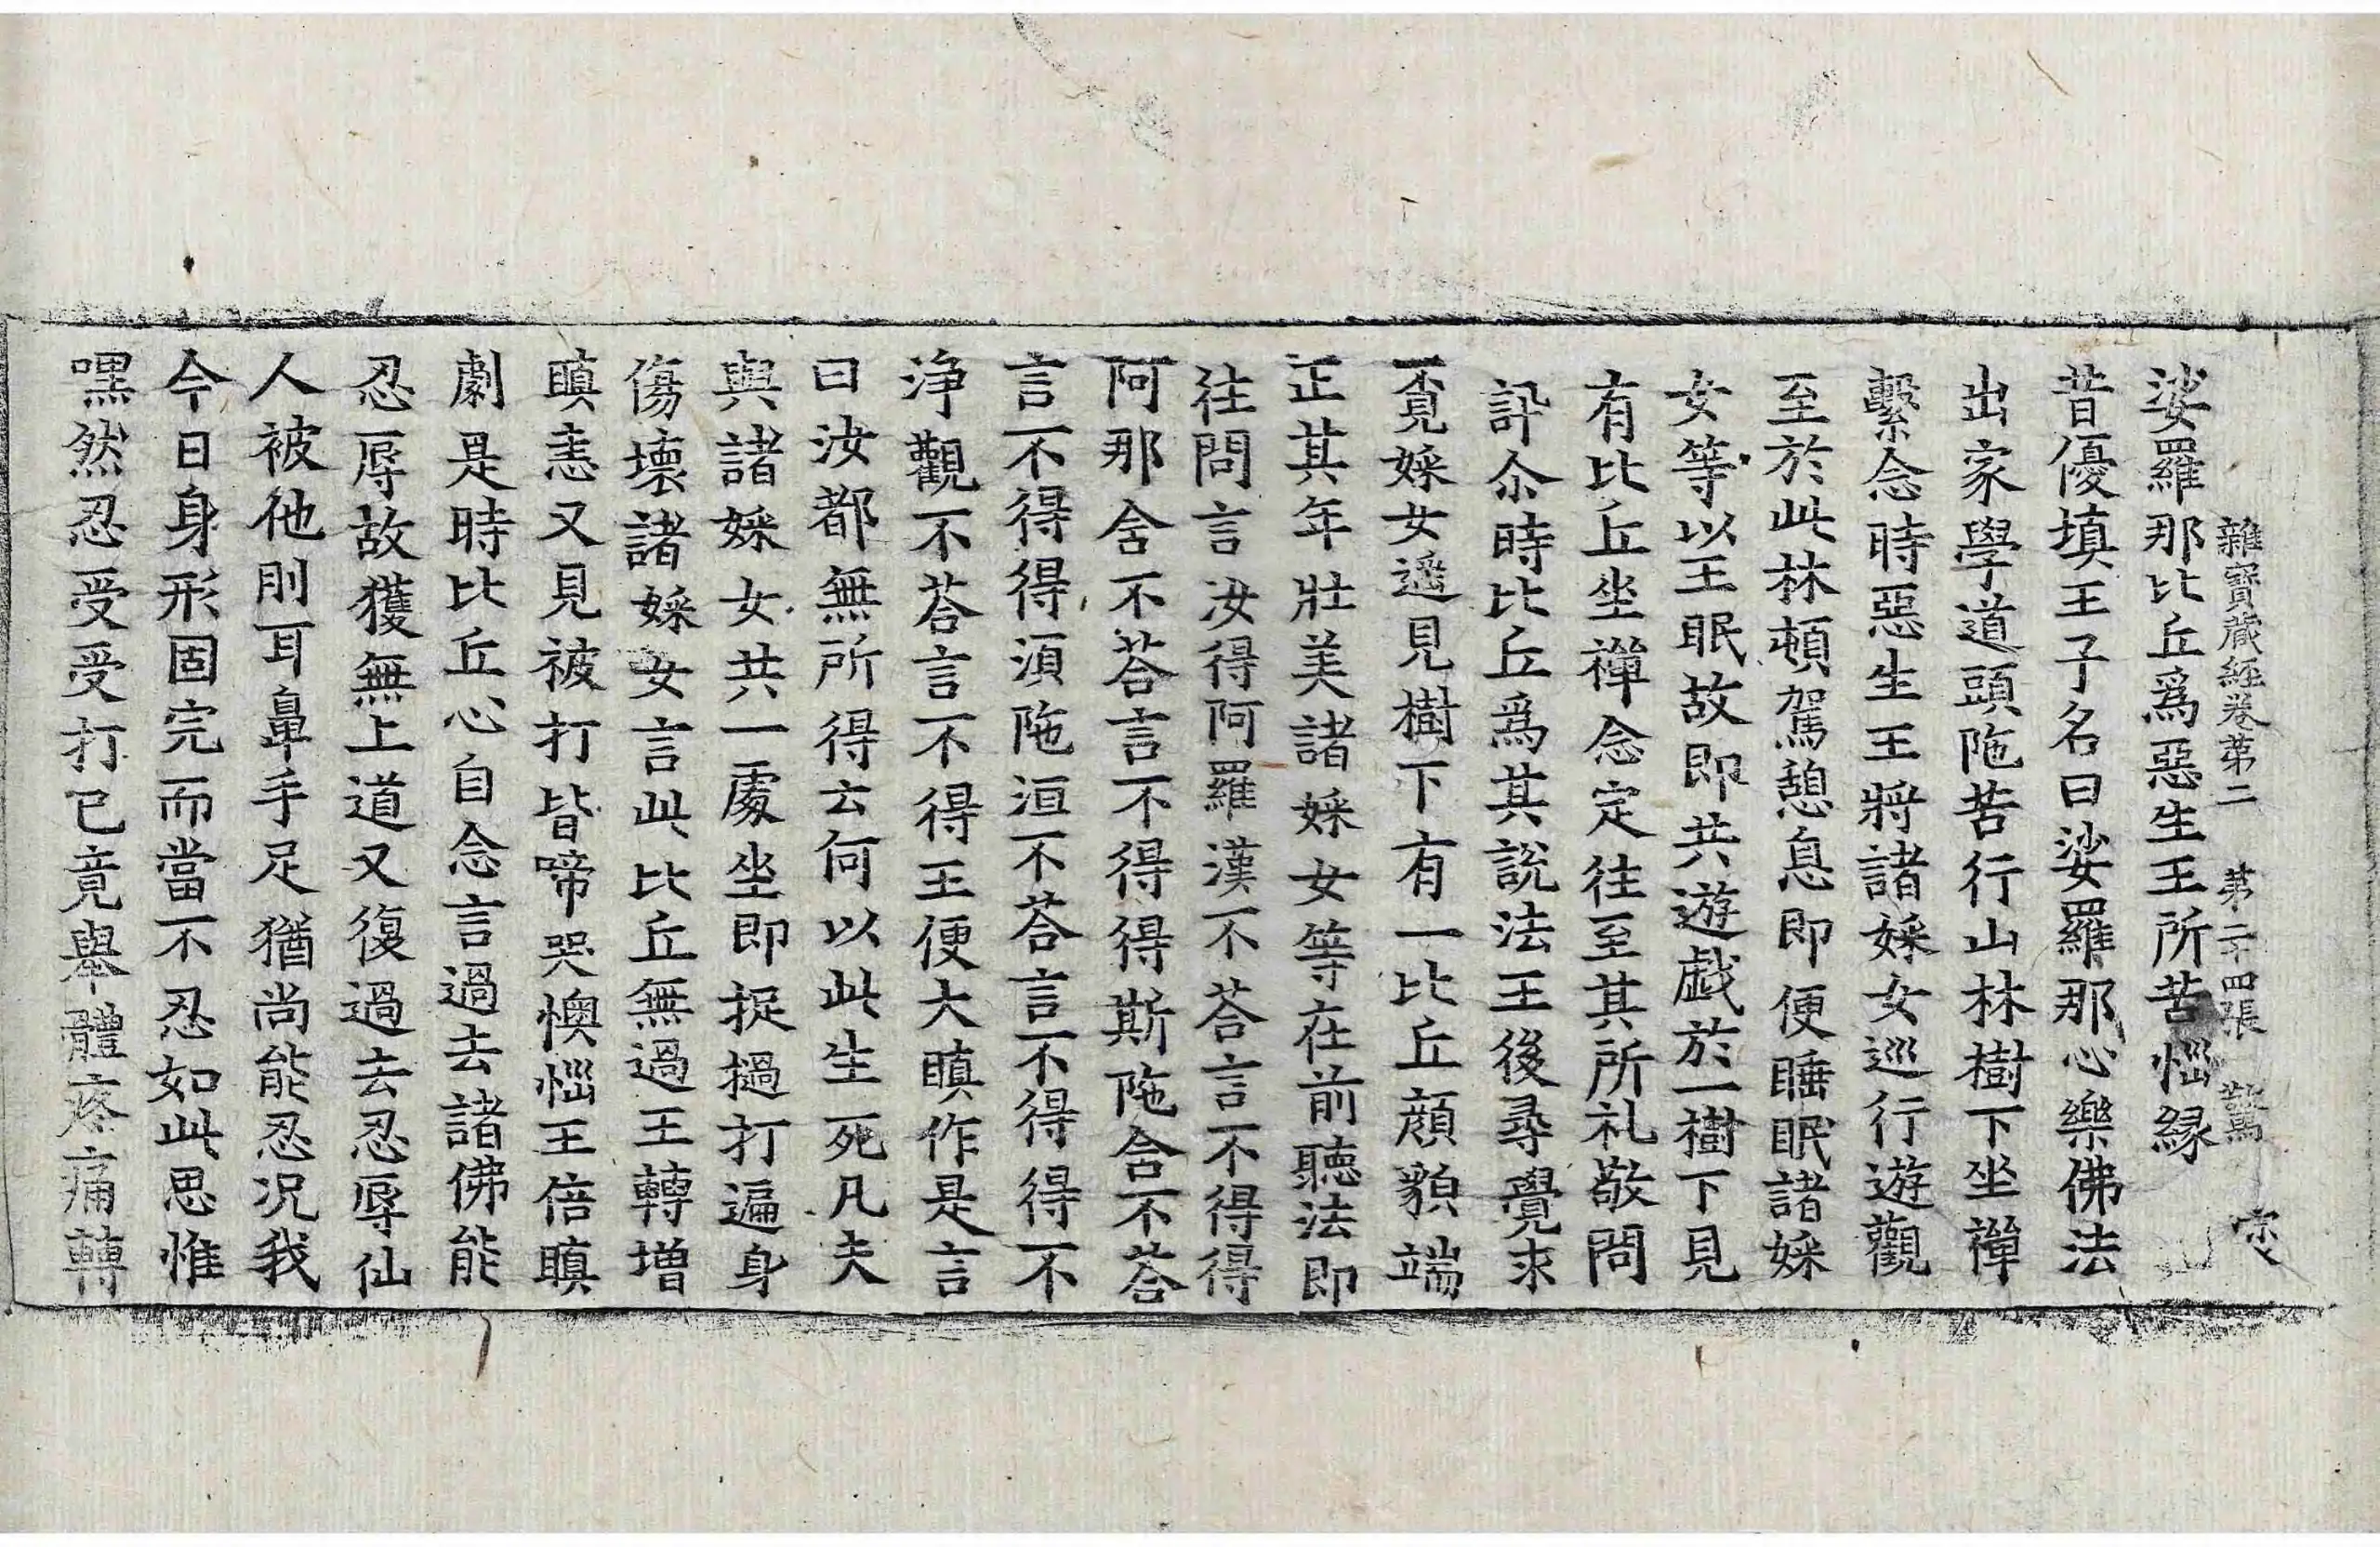 雜寶藏經卷第二 第二十四張 驚
娑羅那比丘爲惡生王所苦惱緣
昔優填王子名曰娑羅那心樂佛法
出家學道頭陁苦行山林樹下坐禪
繫念時惡生王將諸婇女巡行遊觀
至於此林頓駕憩息即便睡眠諸婇
女等以王眠故即共遊戱於一樹下見
有比丘坐禪念定往至其所礼敬問
訊尒時比丘爲其說法王後尋覺求
覔婇女遥見樹下有一比丘顔貌端
正其年壯美諸婇女等在前聽法即
往問言汝得阿羅漢不荅言不得得
阿那舍不荅言不得得斯陁含不荅
言不得得湏陁洹不荅言不得得不
淨觀不荅言不得王便大瞋作是言
曰汝都無所得云何以此生死凡夫
與諸婇女共一處坐即捉撾打遍身
傷壞諸婇女言此比丘無過王轉增
瞋恚又見被打皆啼哭懊惱王倍瞋
劇是時比丘心自念言過去諸佛能
忍辱故獲無上道又復過去忍辱仙
人被他刖耳鼻手足猶尚能忍况我
今日身形固完而當不忍如此思惟
嘿然忍受受打已竟舉體疼痛轉